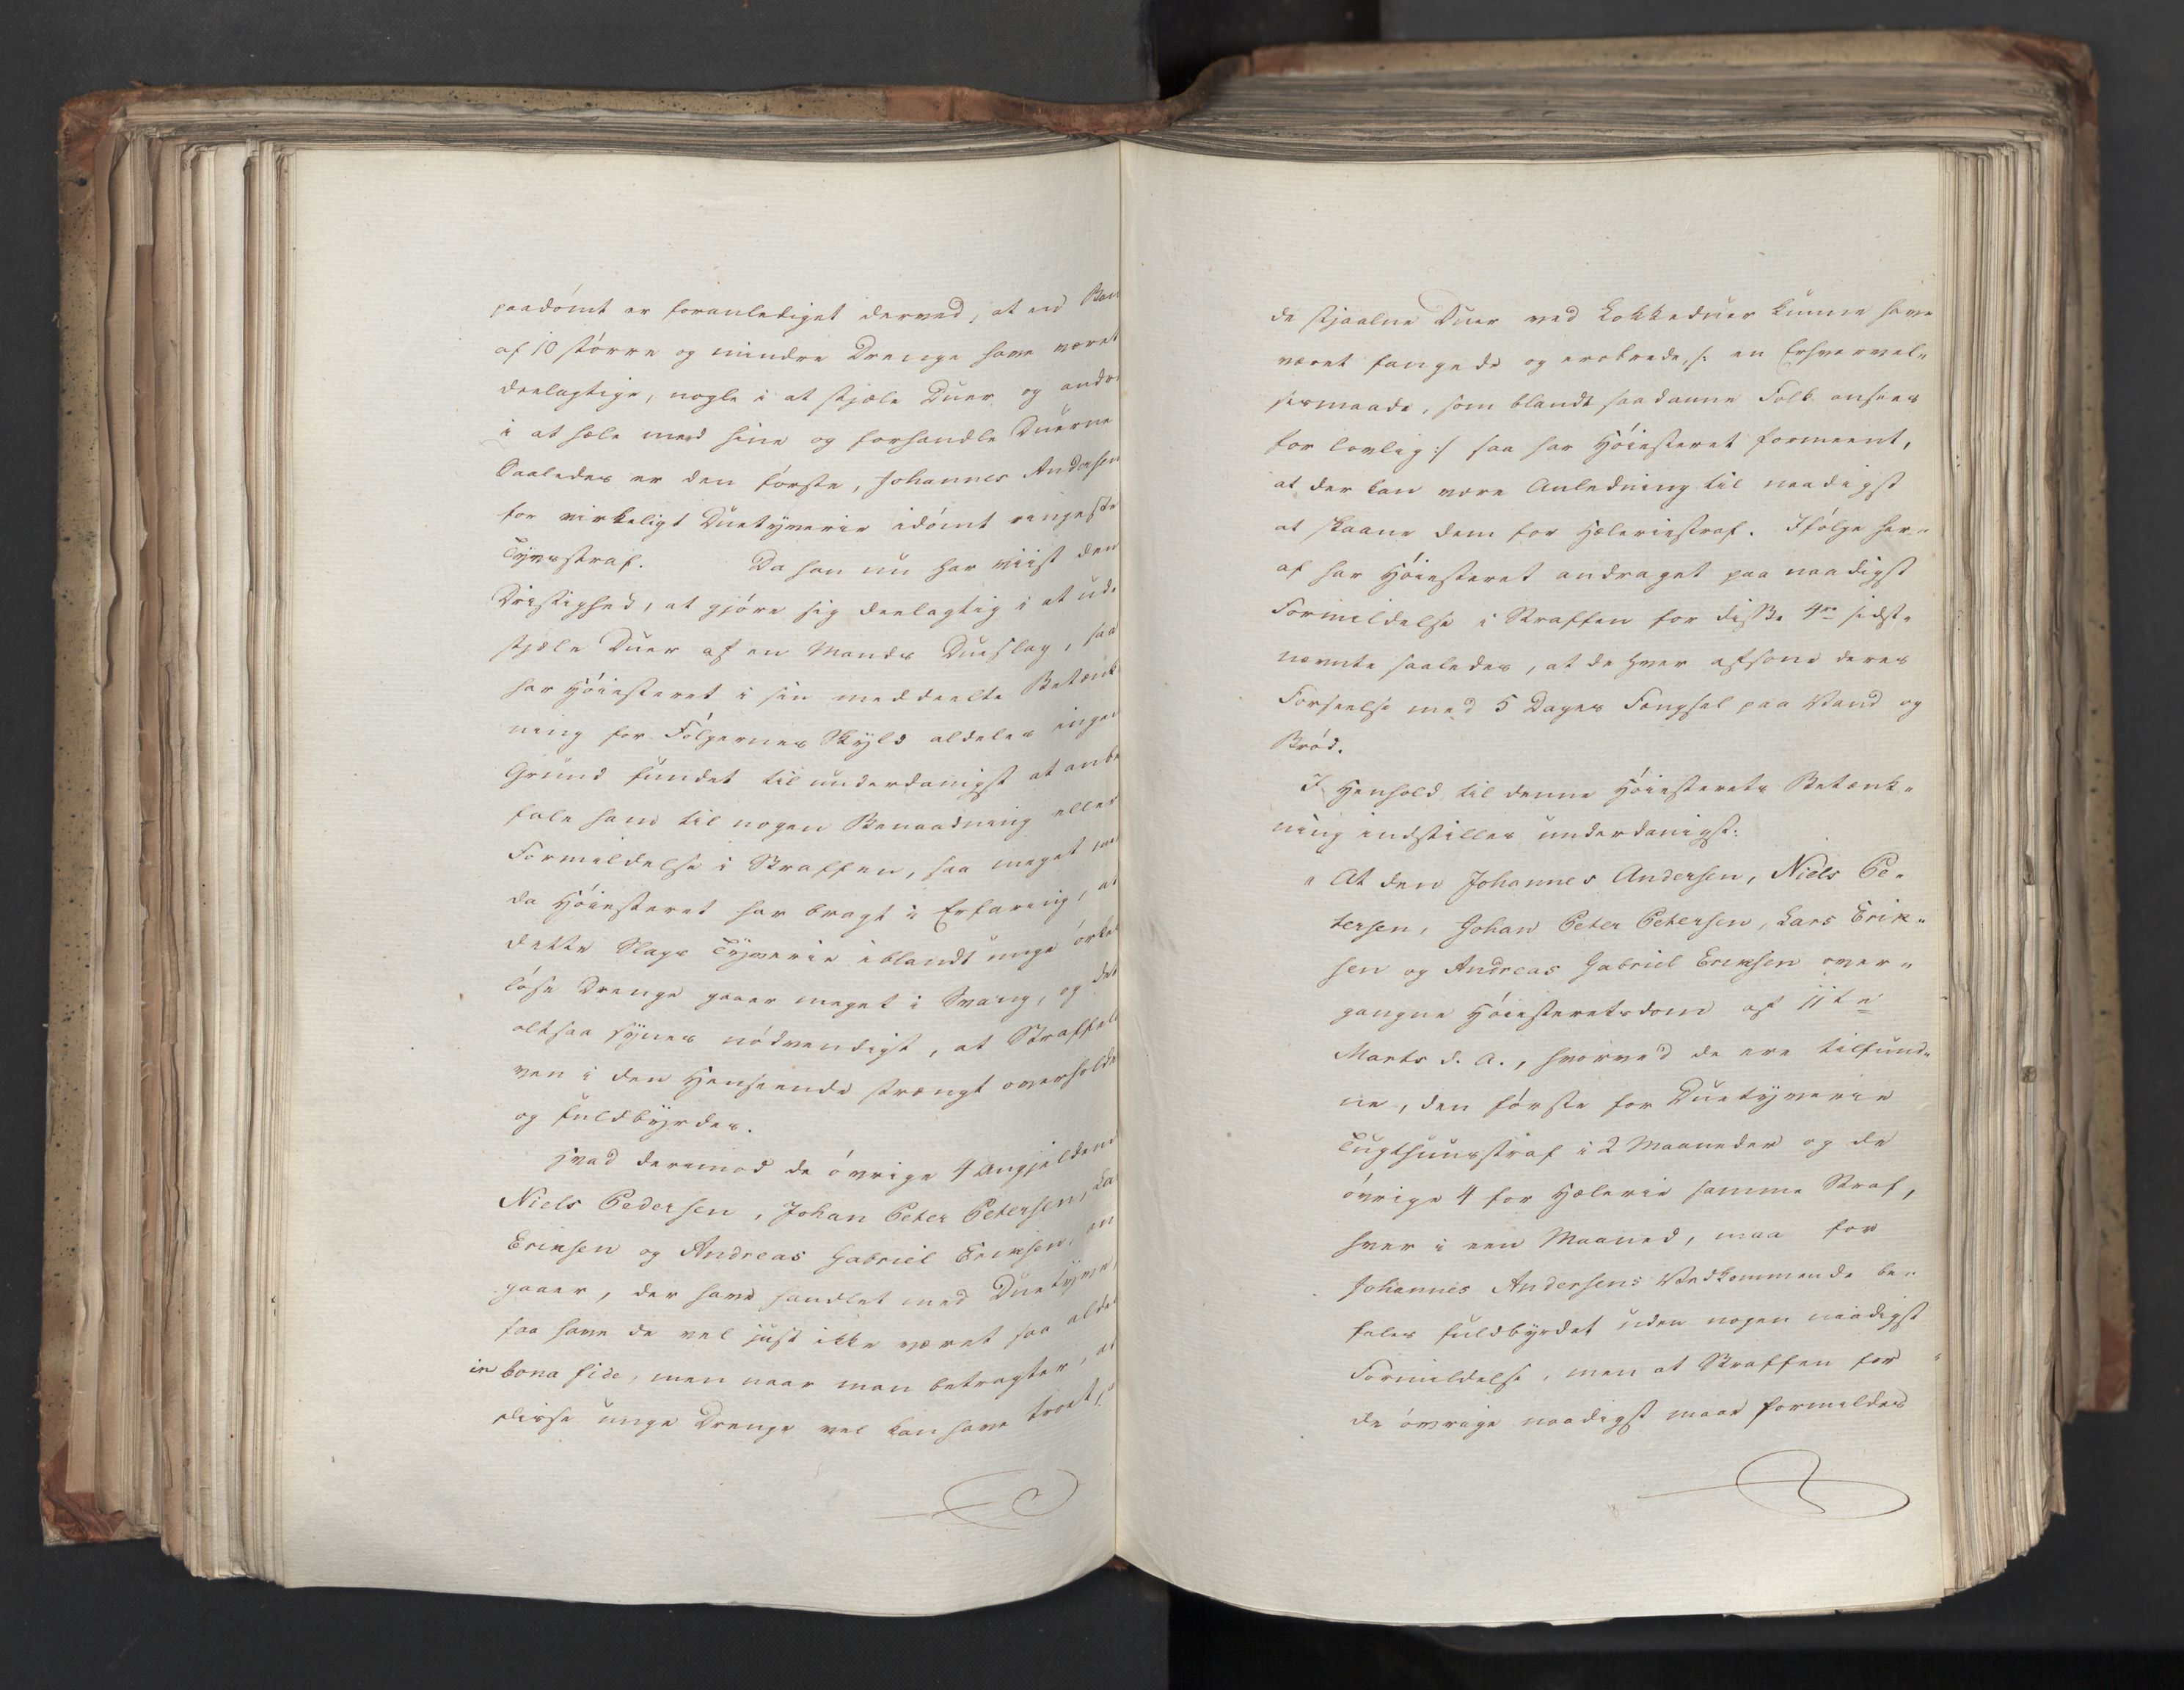 paadømt er foranlediget derved, at en Ban
af 10 større og mindre Drenge have været
deelagtige, nogle i at stjæle Duer og andre
i at hæle med hine og forhandle Duerne
Saaledes er den første, Johannes Andersen
for virkeligt Duetyverie idømt ringeste
Tyvsstraf. Da han nu har viist den
Dristighed, at gjøre sig deelagtig i at ud-
stjæle Duer af en Mands Dueslag, saa
har Høiesteret i sin meddeelte Betænk
ning for Følgernes Skyld aldeles ingen
Grund fundet til underdanigst at anbe
fale ham til nogen Benaadning eller
Formildelse i Straffen, saa meget me
da Høiesteret har bragt i Erfaring, at
dette Slags Tyverie iblandt unge ørkes
løse Drenge gaaer meget i Svang, og det
altsaa synes nødvendigt, at Straffel
ven i den Henseende strængt overholde
og fuldbyrdes.
Hvad derimod de øvrige 4 Angjeldend
Niels Pedersen, Johan Peter Petersen, La
Eriksen og Andreas Gabriel Eriksen, an
gaaer, der have handlet med Duetyve,
saa have de vel just ikke været saa alde
in bona fide, men naar man betragter, at
disse unge Drenge vel kan have troet,
de stjaalne Duer ved Lokkeduer kunne have
været fangede og erobrede, /: en Erhvervel-
sesmaade, som blandt saadanne Folk ansees
for lovlig :/ saa har Høiesteret formeent,
at der kan være Anledning til naadigst
at skaane dem for Hæleriestraf. Ifølge her-
af har Høiesteret andraget paa naadigst
Formildelse i Straffen for disse 4re sidst-
nævnte saaledes, at de hver afsone deres
Forseelse med 5 Dages Fængsel paa Vand og
Brød.
I Henhold til denne Høiesterets Betænk-
ning indstilles underdanigst:
" At den Johannes Andersen, Niels Pe-
tersen, Johan Peter Petersen, Lars Erik-
sen og Andreas Gabriel Eriksen over-
gangne Høiesteretsdom af 11te
Marts d. A., hvorved de ere tilfund-
ne, den første for Duetyverie
Tugthuusstraf i 2 Maaneder og de
øvrige 4 for Hælerie samme Straf,
hver i een Maaned, maa for
Johannes Andersens Vedkommende be-
fales fuldbyrdet uden nogen naadigst
Formildelse, men at Straffen for
de øvrige naadigst maae formildes